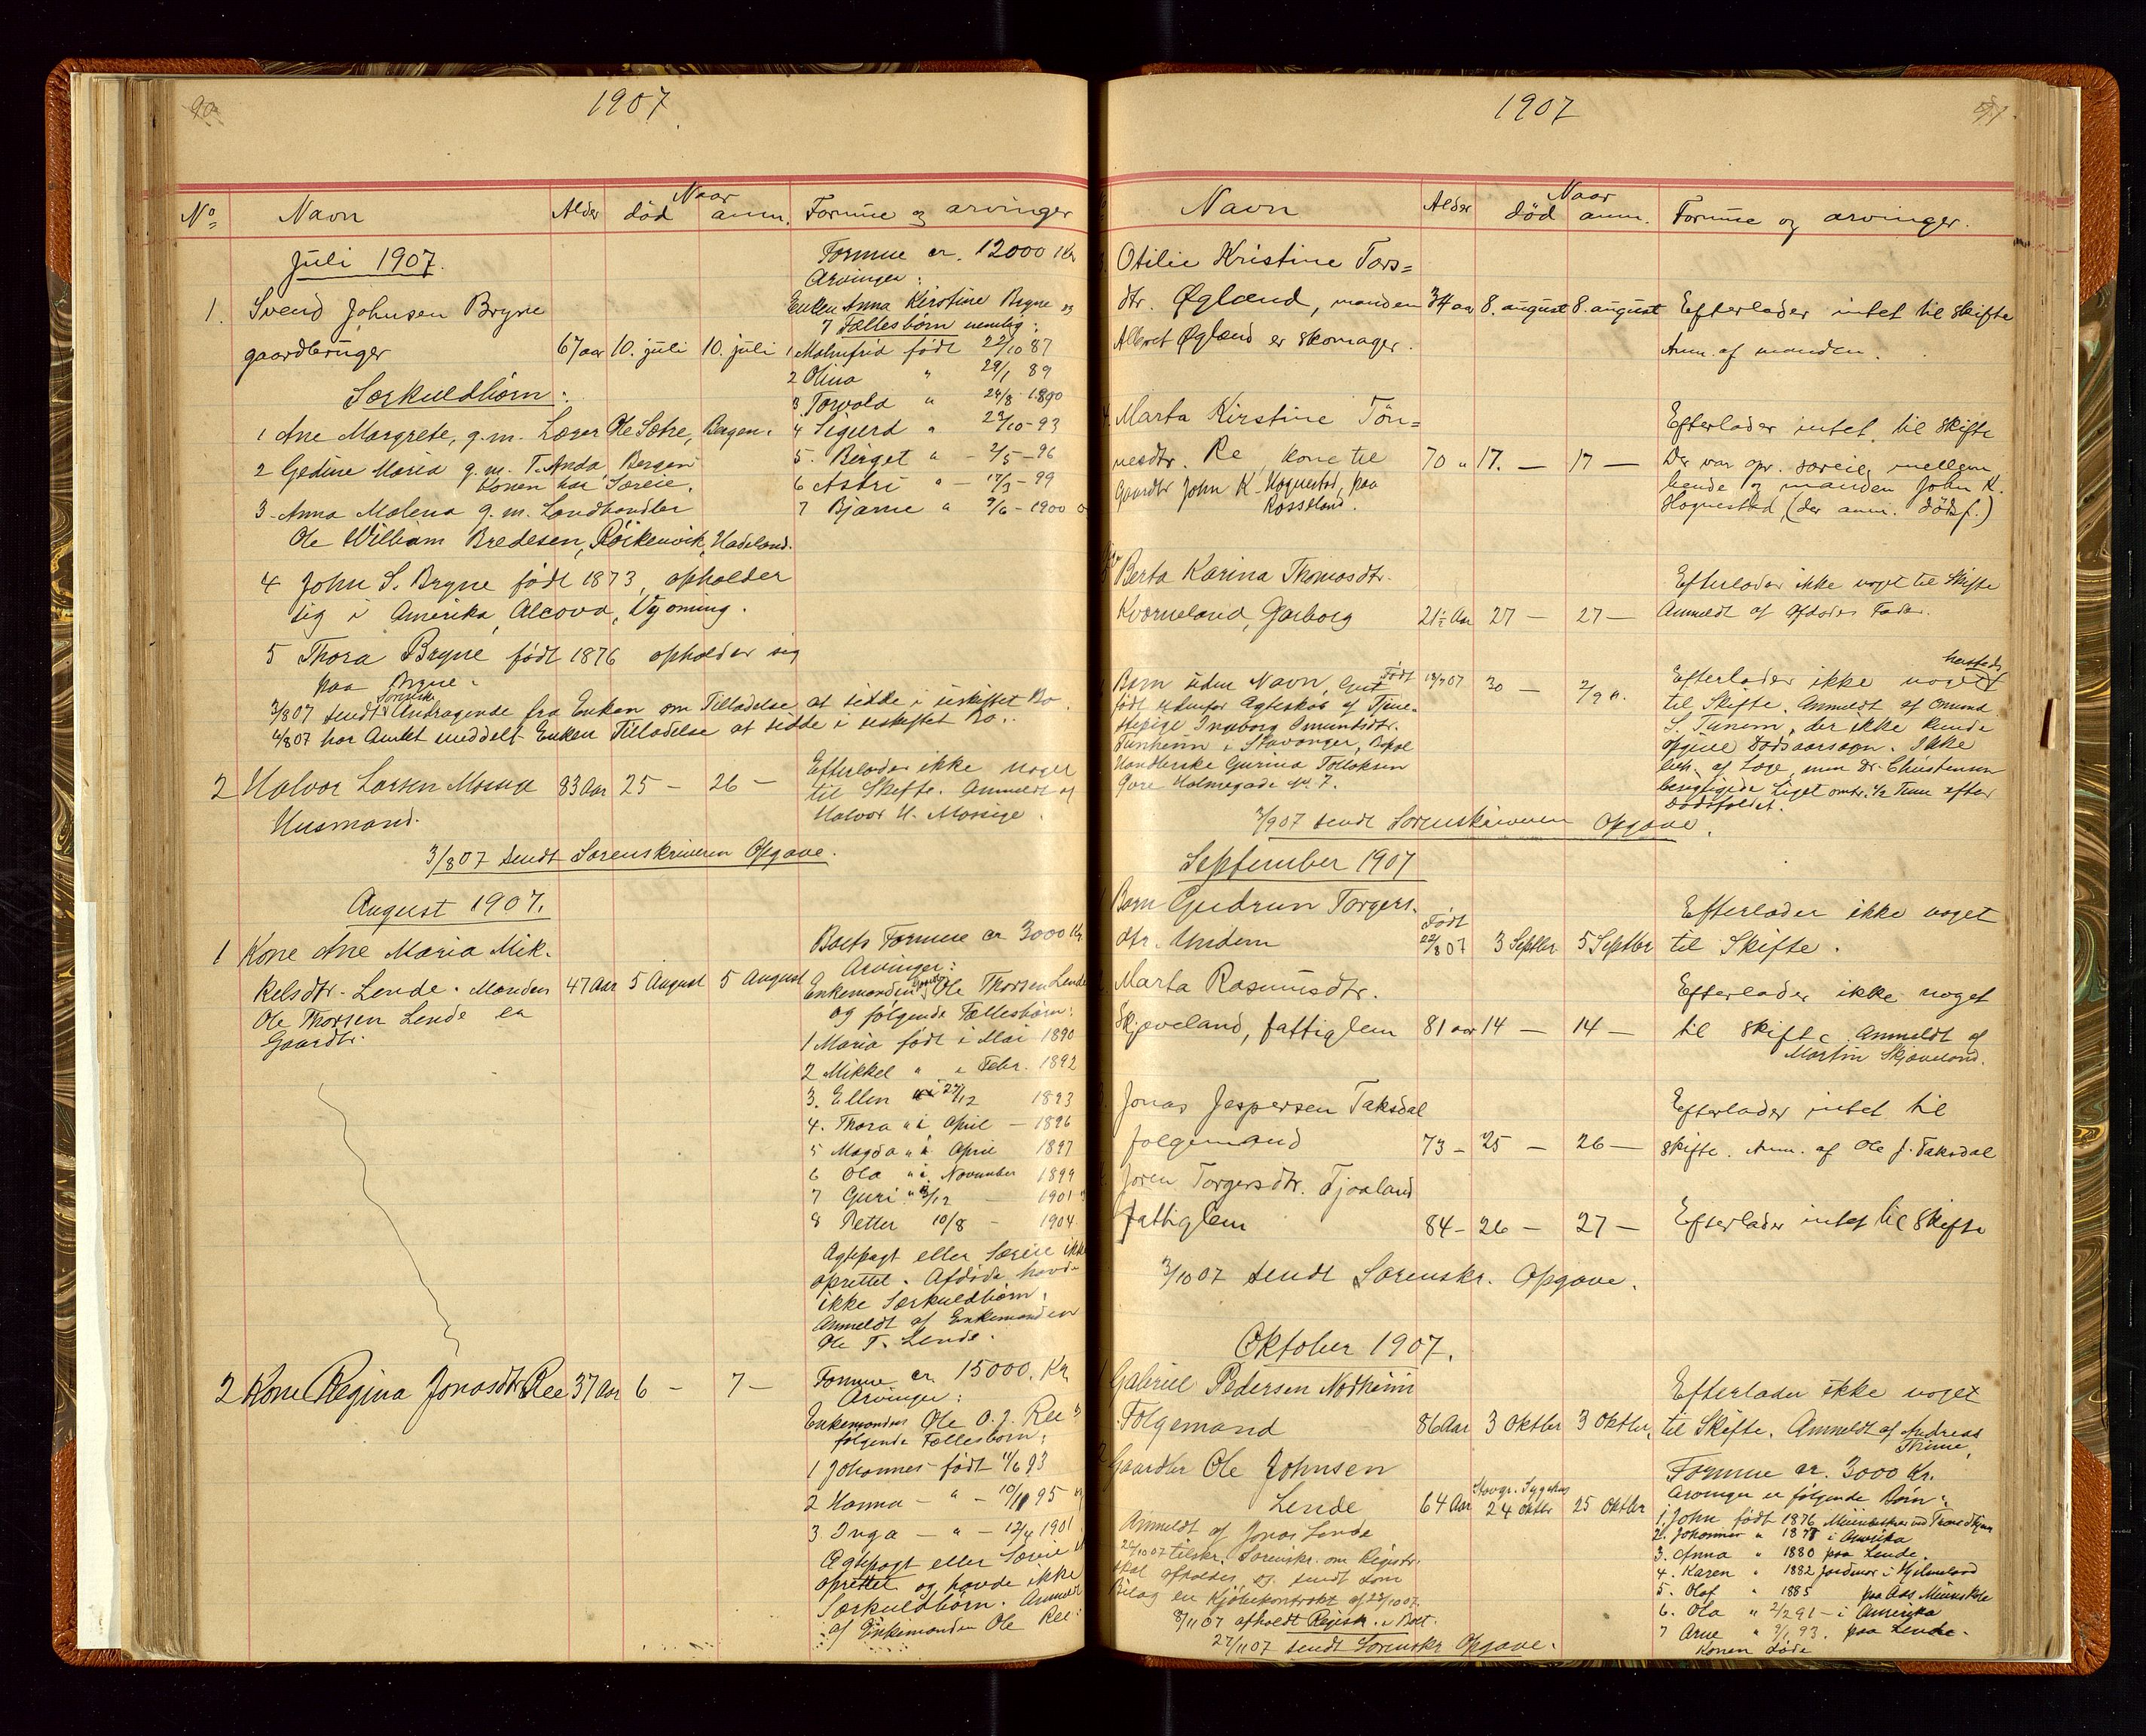 90
1907
No Navn Alder Naar død anm. Formue og arvinger
Juli 1907.
Formue ca. 12000 Kr
Arvinger:
1. Svend Johnsen Bryne
Enken Anna Kirstine Bryne og
7 Fællesbörn nemlig:
gaardbruger 67 aar 10. juli 10. juli
1 Malmfrid født 22/10 87
2 Olina " 29/1 89
Særkuldbörn:
3. Torvald " 24/8 1890
1 Ane Margrete, g.m. Læger Ole Sætre, Bergen.
4 Sigurd " 23/10-93
2 Gedine Maria g.m. T. Anda, Bergen
5. Berget " - 2/5-96
Konen har Særeie.
6 Astri " - 17/3-99
3. Anna Malena g.m. Landhandler
7 Bjarne " 9/6-1900
Ole William Bredesen, Röikenvik, Hadeland.
4 John S. Bryne født 1873, opholder
sig i Amerika, Alcova, Wyoming.
5 Thora Bryne født 1876 opholder sig
paa Bryne.
3/8 07 sendt Sorenskr Andragende fra Enken om Tilladelse at sidde i uskiftet Bo.
4/8 07 har Amtet meddelt Enken Tilladelse at sidde i uskiftet Bo.
2 Halvor Larsen Mossige 83 Aar 25 - 26 -
Husmand.
Efterlader ikke noget
til Skifte. Anmeldt af
Halvor H. Mossige.
3/8 07 sendt Sorenskriveren Opgave.
August 1907.
Boets Formue ca 3000 Kr.
1 Kone Ane Maria Mik-
Arvinger:
kelsdtr. Lende. Manden 47 Aar 5 August 5 August
Enkemanden Ole Thorsen Lende
Ole Thorsen Lende er
og følgende Fællesbørn:
Gaardbr.
1 Maria født i Mai 1890
2 Mikkel " " Febr. 1892
3. Ellen 27/12 1893
4. Thora " i April - 1896
5 Magda " i April 1897
6 Ola " i November 1899
7 Guri " 3/12 - 1901
8 Petter 10/8 - 1904.
Agtepagt eller Særeie ikke
oprettet. Afdøde havde
ikke Særkuldbørn.
Anmeldt af Enkemanden
Ole T. Lende.
2 Kone Regina Jonasdtr Ree 37 Aar 6 - 7 -
Formue ca 15000. Kr
Arvinger:
Enkemanden Ole O. J. Ree
følgende Fællesbørn:
1 Johannes født 11/6 93
2 Hanna - " - 10/11 95
3 Inga - " - 12/4 1901
Agtepagt eller Særeie
oprettet og havde ikke
Særkuldbørn. Anmeldt
af Enkemanden Ole Ree.
1907
91
Navn Alder Naar død anm. Formue og arvinger.
Otilie Kristine Tors=
dtr. Øgland, manden 34 aar 8. august 8. august Efterlader intet til skifte
Albret Øgland er skomager.
Anm. af manden.
Marta Kirstine Tön=
Efterlader intet til skifte
nesdtr. Re, kone til 70 " 17. - 17 -
Der var opr. særeie mellem
gaardbr John K. Hognestad, paa
hende og manden John K.
Rosseland.
Hognestad, (der anm. dödsf.)
Berta Karina Thomasdtr.
Efterlader ikke noget til Skifte
Kverneland, Garborg 21½ Aar 27 - 27 -
Anmeldt af Afdødes Fader.
Barn uden Navn, Gut Født 18/7 07 30 - 2/9 "
født udenfor Ægteskab af Tjene-
stepige Ingeborg Omundsdtr.
Tunheim i Stavanger, Bopæl
Handlerske Gurina Tollaksen
Øvre Holmegade No. 7.
Efterlader ikke noget
til Skifte. Anmeldt af Omund
S. Tunem, der ikke kunde
opgive Dødsaarsagen. Ikke
beh. af Læge, men Dr. Christensen
besigtigede Liget omtr. ½ Time efter
Dødsfaldet.
3/9 07 sendt Sorenskriveren Opgave.
September 1907
Barn Gudrun Torgers-
Efterlader ikke noget
dtr. Undem Født 22/8 07 3 Septbr 5 Septbr til Skifte.
Marta Rasmusdtr.
Efterlader ikke noget
Skjæveland, fattiglem 81 aar 14 - 14 - til skifte Anmeldt af
Martin Skjæveland.
Jonas Jespersen Taksdal
Efterlader intet til
følgemand 73 - 25 - 26 - skifte. Anm. af Ole J. Taksdal
Joren Torgersdtr. Fjoaland
fattiglem 84 - 26 - 27 - Efterlader intet til skifte
3/10 07 sendt Sorenskr. Opgave.
Oktober 1907.
Gabriel Pedersen Nodheim
Efterlader ikke noget
Følgemand 86 Aar 3 Oktbr 3 Oktbr. til Skifte. Anmeldt af Andreas
Thime.
Gaardbr Ole Johnsen
Formue ca. 3000 Kr.
Lende 64 Aar Stavgr. Sygehus 24 Oktbr 25 Oktbr
Arvinger er følgende Børn:
1. John født 1876
2. Johannes " 187 i Amerika
3. Anna " 1880 paa Lende.
4. Karen " 1882 Jordmor i Hjelmeland
5. Olaf " 1885
6. Ola " 2/2 91 - i Amerika
7 Arne " 3/1 93. paa Lende.
Konen døde
Anmeldt af Jonas Lende
26/10 07 tilskr. Sorenskr. om Registr.
skal afholdes og sendt som
Bilag en Kjöbekontrakt af 23/10 07.
8/11 07 afholdt Registr. i Boet.
27/11 07 sendt Sorenskr Opgave.